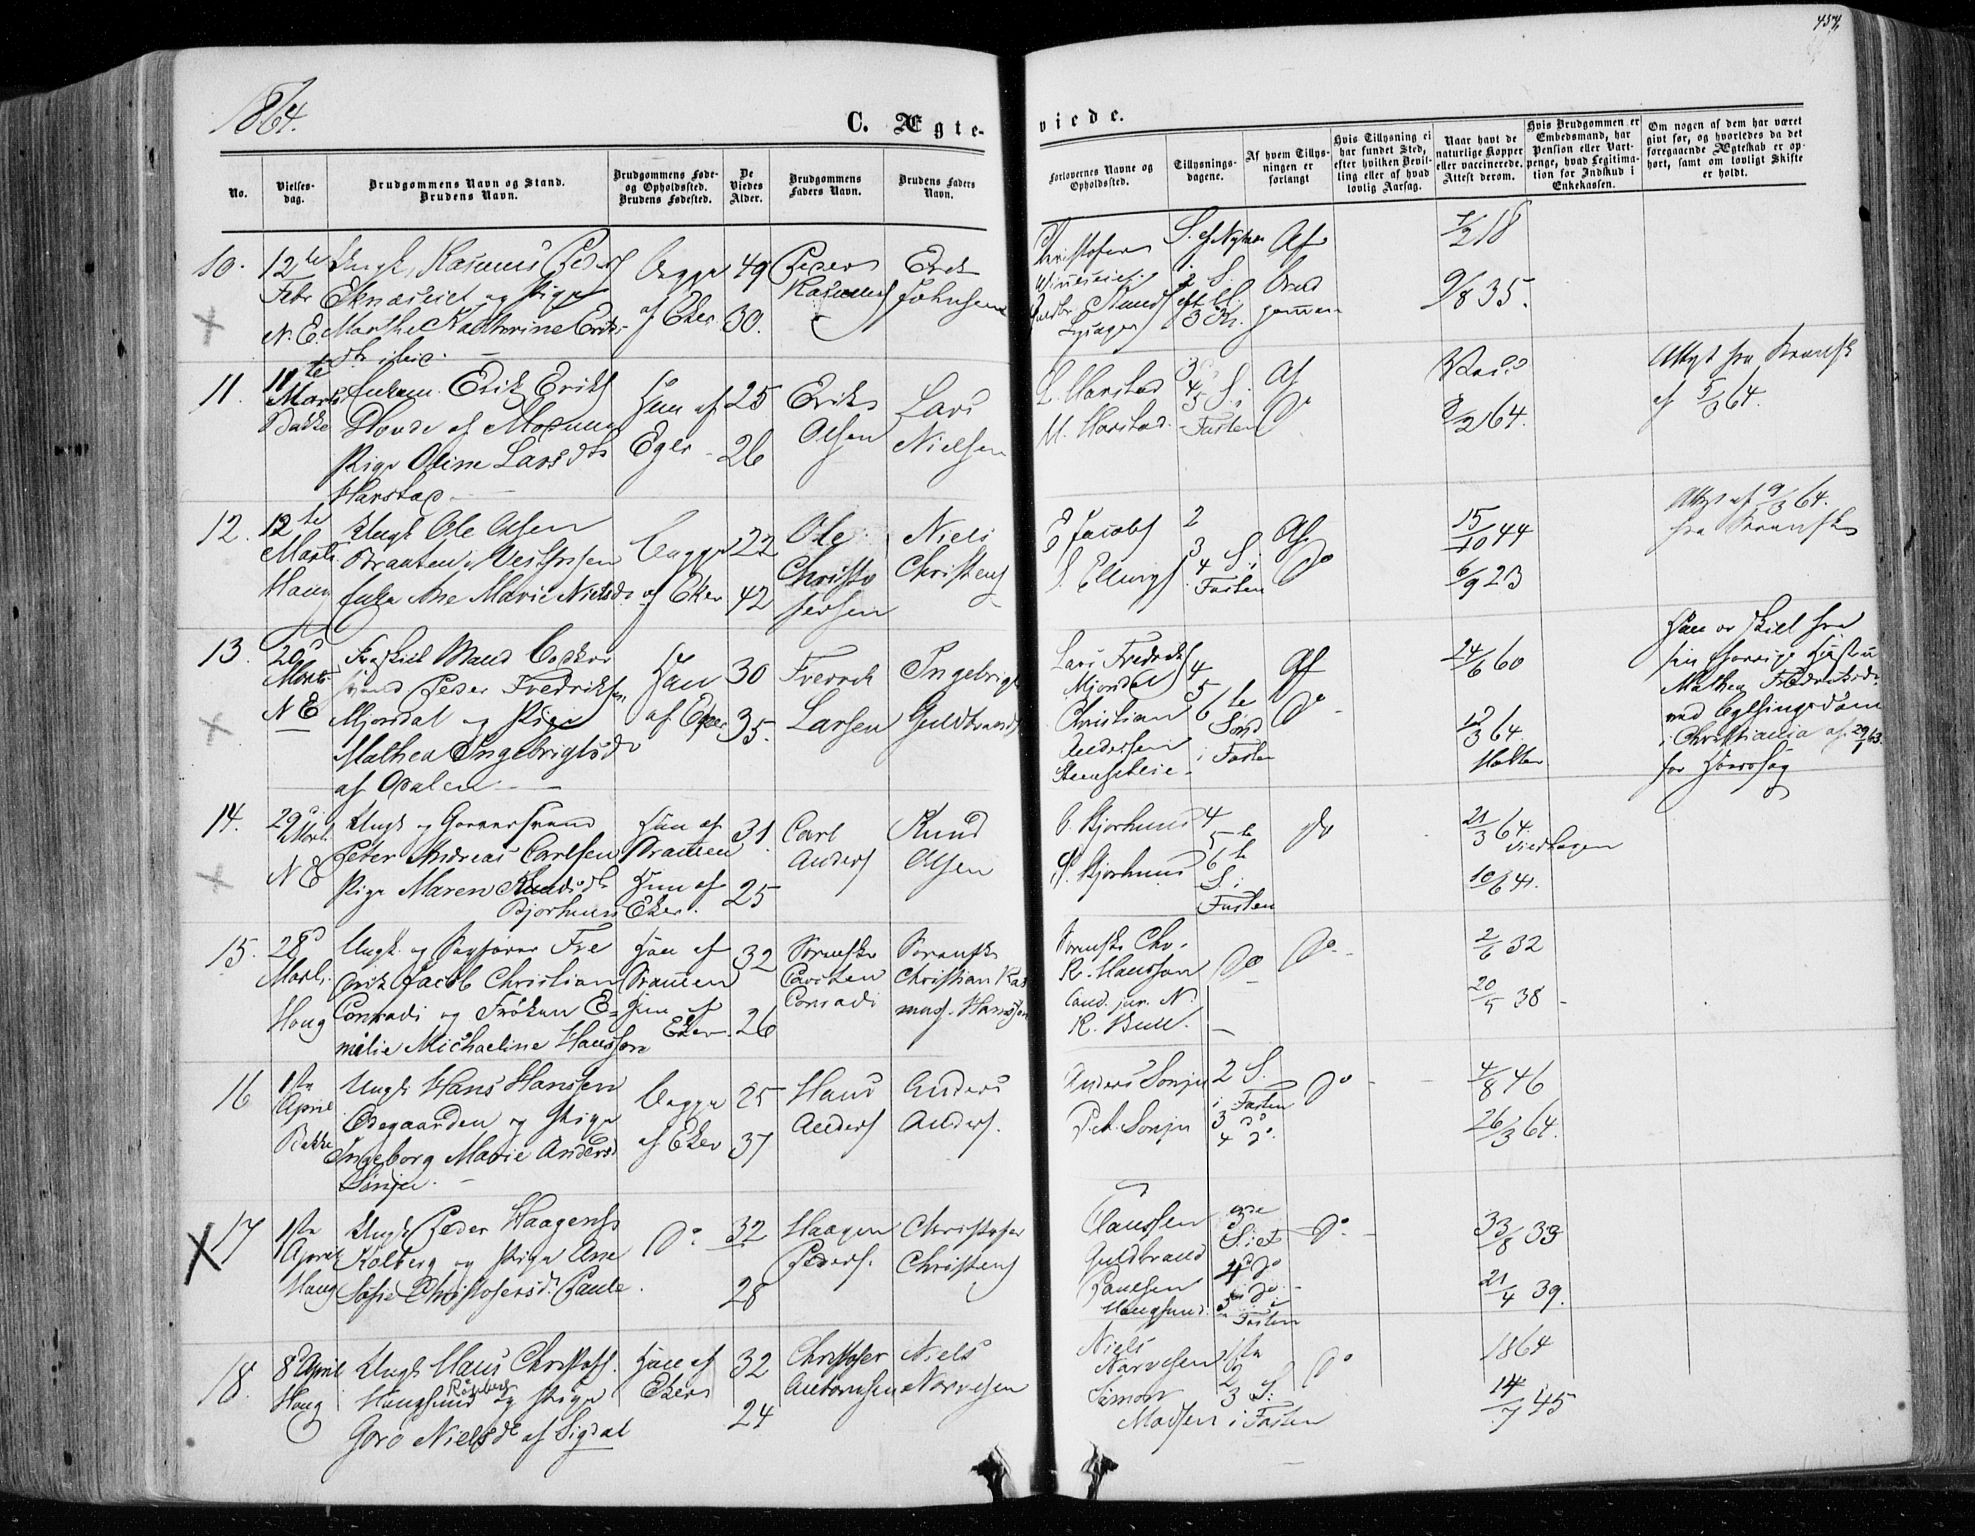 457
1864.
C. Ægte-
viede.
No.
Vielses-
dag.
Brudgommens Navn og Stand.
Brudens Navn.
Brudgommens Føde-
og Opholdssted.
Brudens Fødested.
De
Viedes
Alder.
Brudgommens
Faders Navn.
Brudens Faders
Navn.
Forlovernes Navne og
Opholdssted.
Tillysnings-
dagene.
Af hvem Tillys-
ningen er
forlangt
Hvis Tillysning ei
har fundet Sted,
efter hvilken Bevil-
ling eller af hvad
lovlig Aarsag.
Naar havt de
naturlige Kopper
eller vaccinerede.
Attest derom.
Hvis Brudgommen er
Embedsmand, har
Pension eller Vart-
penge, hvad Legitima-
tion for Indskud i
Enkekassen.
Om nogen af dem har været
givt før, og hvorledes da det
foregaaende Ægteskab er op-
hørt, samt om lovligt Skifte
er holdt.
10.
12te
Febr
N. E.
Ungk. Rasmus Peders
og Pige
Marthe Kathrine Eriks-
Begge
af Eker
49
30.
Peder
Rasmus
Erik
Johnsen
Christofer
S. ef Nytaar
Af
Brud
gommen
7/2 18
9/8 35.
11.
11te
Marts
Bakke
Enkem. Erik Eriks
Hovde af Modum
Pige Oline Larsdtr
Harstad
Hun af
Eger
25
26
Erik
Olsen
Lars
Nielsen
L. Harstad
M. Harstad.
3
4
5 S. i
Fasten
Af
Do
Vacc.
8/2 64.
Attest fra
af 5/3 64.
12.
12te
Marts
Haug
Ungk Ole Olsen
Braaten
Enke Ane Marie Nielsd.
Begge
af Eker
22
42
Ole
Christo
fersen
Niels
Christens
E Jacobs
S. Ellings
2
3
4 S. i
Fasten
Af
Do
15/10 44
6/9 23
Attest af 9/3 64.
fra
13.
20d
Marts
N E
Fraskilt Mand
Peder Fredriksen
Mjøndal og Pige
Mathea Ingebrigtsd.
af Dalen
Han
af Eker
30
35.
Fredrik
Larsen
Ingebrigt
Guldbrands
Lars Fredriks
Mjøndal
Christian
Andersen
Stenseteie
4
5
6te
Sønd
i Fasten
Af
Do
24/6 60
12/3 64.
Holter
Han er skilt fra
sin forrige Hustru
Mathea Fredriksd.
ved
i Christiania af 29/1 63.
for Hoersag
14.
29d
Marts
N E
Ungk og Garversvend
Peter Andreas Carlsen
Pige Maren Knudsdtr
Bjorhuus
Han af
Dramen
Hun af
Eker.
31.
25
Carl
Anders
Knud
Olsen
O. Bjorhuus
P. Bjorhuus
4
5te
6te
S. i
Fasten
Do
21/3 64.
10/6 41.
15.
28d
Marts
Haug
Ungk. og Sagfører Fre
drik Jacob Christian
Conradi og Frøken E-
milie Michaeline Hansson
Han af
Dramen
Hun af
Eker
32
26
Sorenskr
Carsten
Conradi
Sorenskr
Christian Ras
mus. Hansson
Sorenskr. Chr.
R. Hansson
Cand. jur. N.
R. Bull.
Do
Do
2/6 32
20/5 38
16
1ste
April
Bakke
Ungk Hans Hansen
Ødegaarden og Pige
Ingeborg Marie Andersd
Sønju.
Begge
af Eker
25
37
Hans
Anders
Anders
Anders.
Anders Sønju
P. A. Sønju
2 S.
i Fasten
3 do
4 do.
Do
4/8 46
26/3 64.
17
1ste
April
Haug
Ungk. Peder Haagens
Kolberg og Pige Ane
Sofie Christofersd.
Do.
32
28
Haagen
Peders.
Christofer
Christens
Claussen
Guldbrand
Paulsen
Haugsund.
3de
S. i F.
4 do
5 S. i
Fasten
Do.
33/8 33
21/4 39.
18.
8d April
Haug
Ungk Hans Christofs.
Haugsund og Pige
Goro Nielsdr af Sigdal
Han af
Eker
32
24
Christofer
Niels
Narvesen
Niels
Narvesen
Simon
Madsen
1ste
2
3 S.
i Fasten
Do
1864
14/7 45